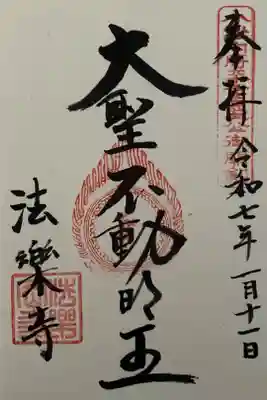 奉拝 令和七年一月十一日
大聖不動明王
法樂寺